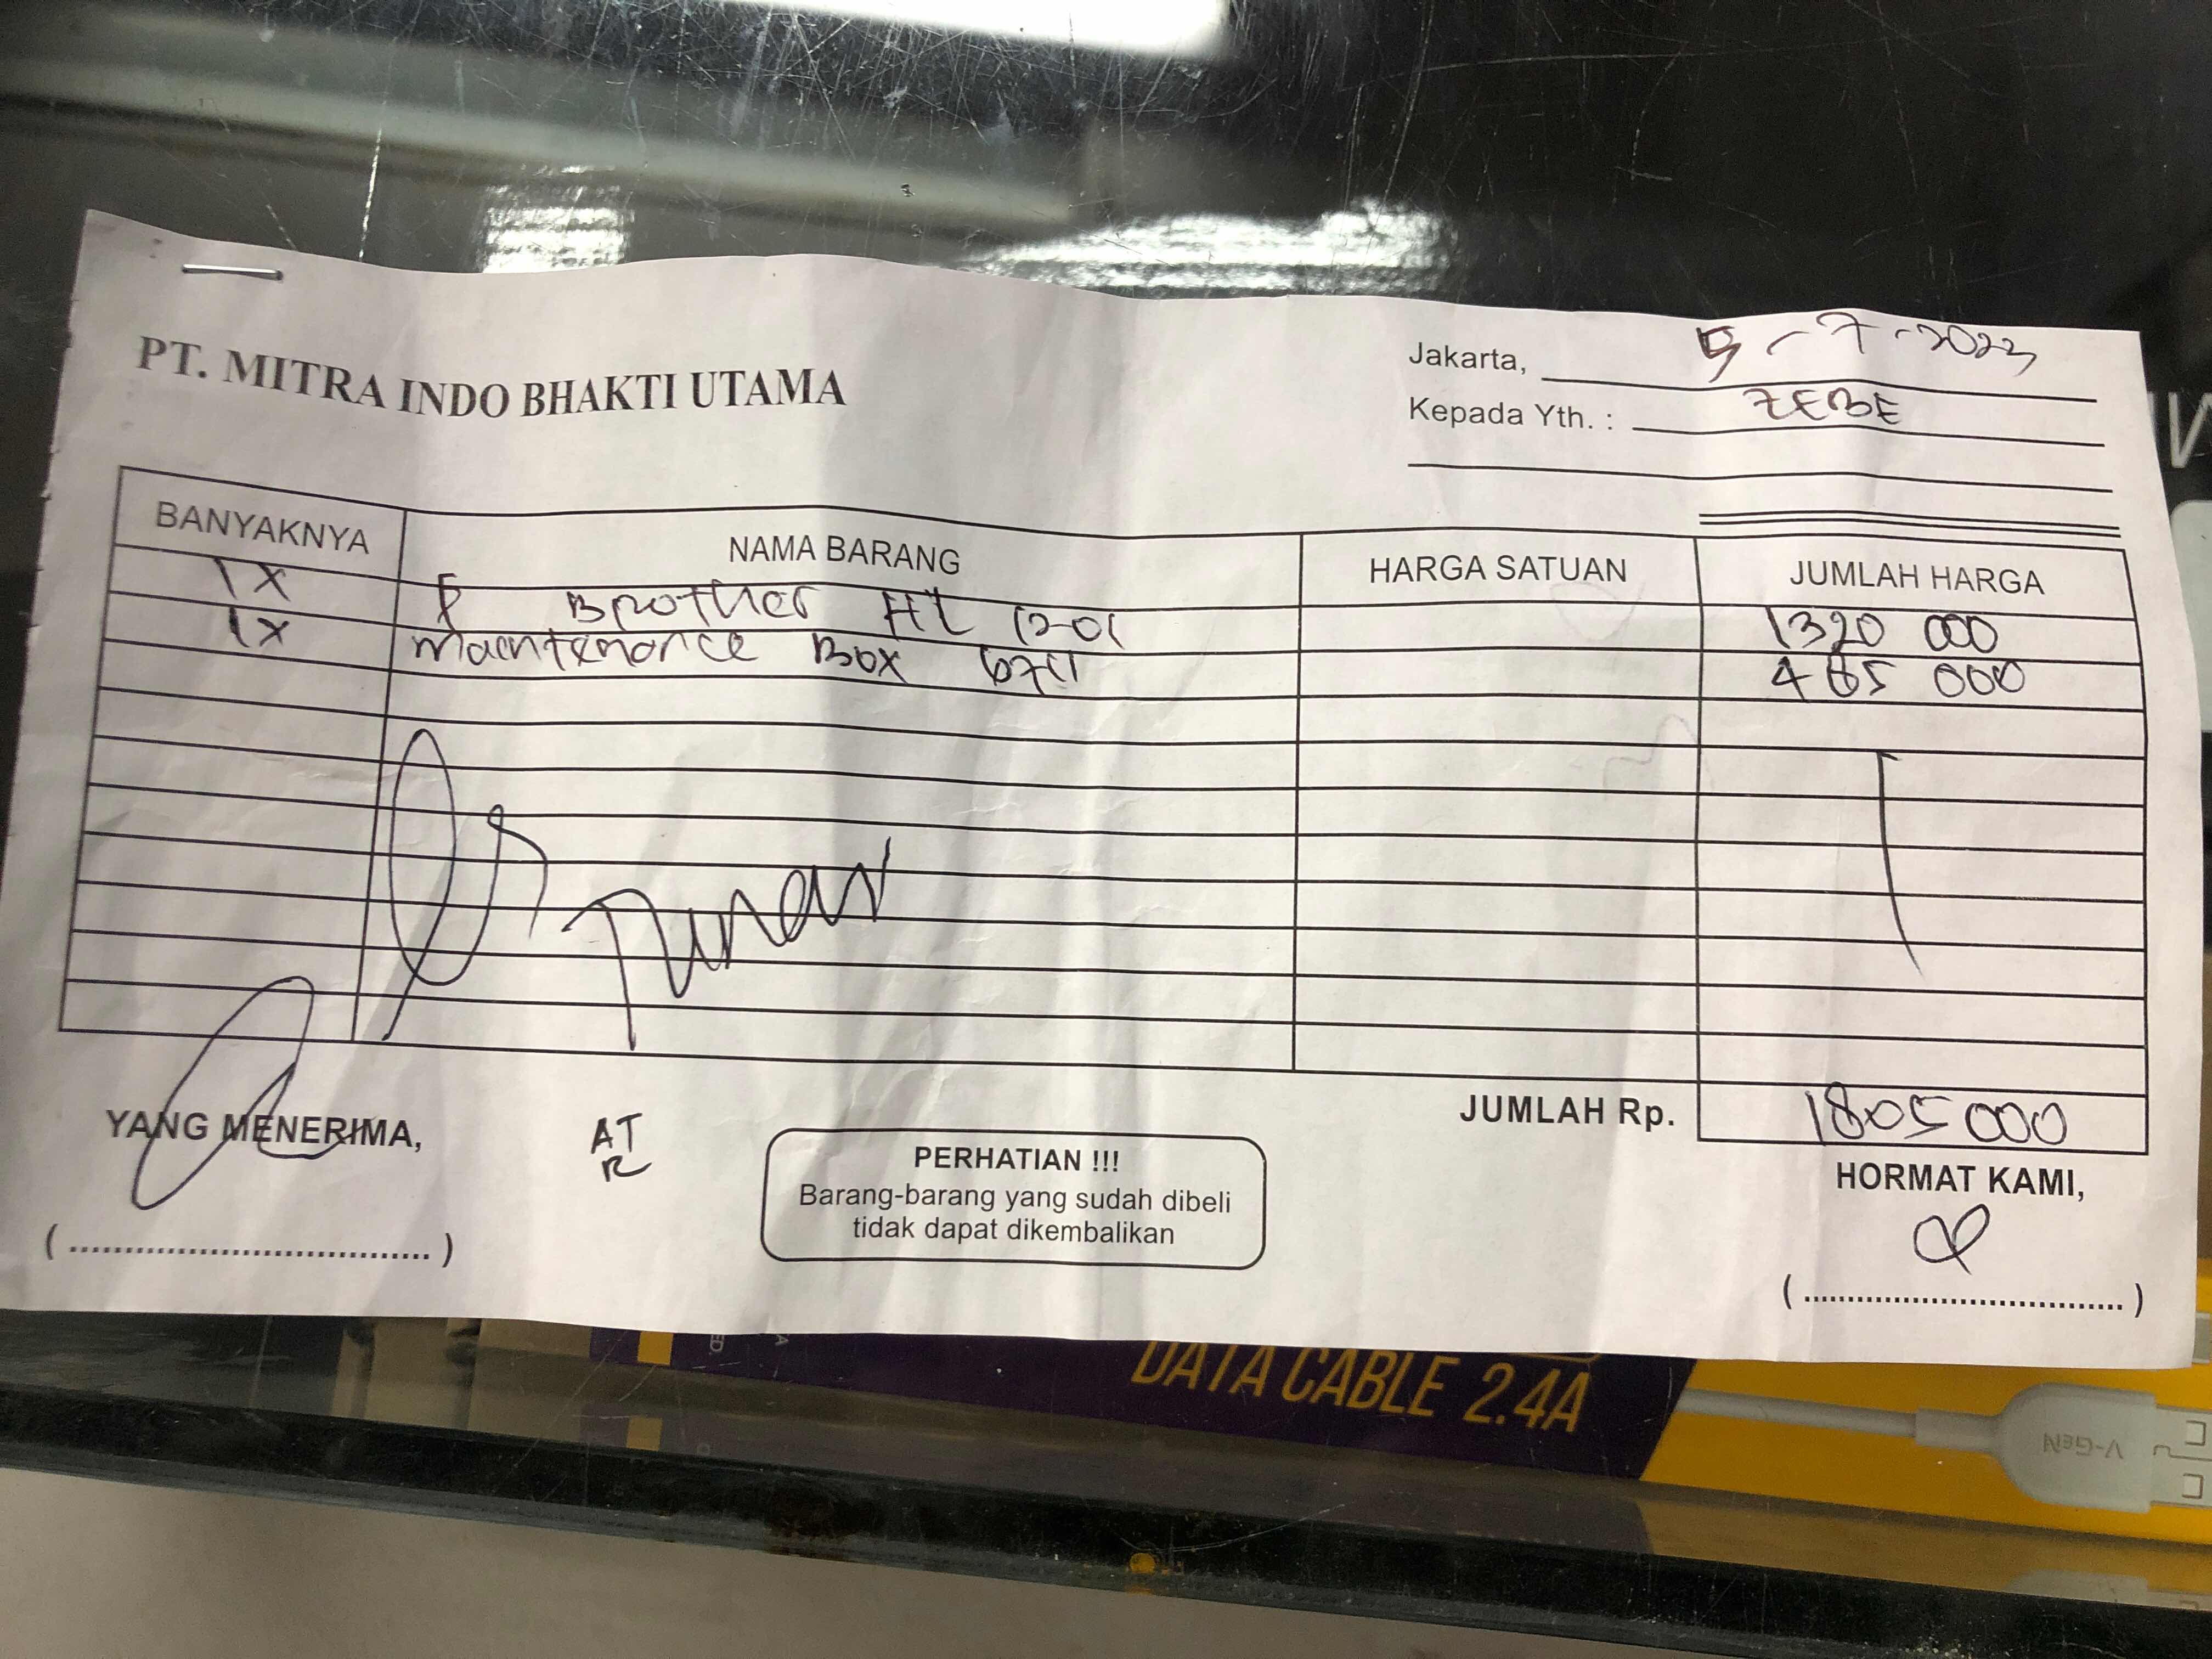 PT. MITRA INDO BHAKTI UTAMA
Jakarta, 5-7-2023
Kepada Yth. : ZEBE
BANYAKNYA NAMA BARANG HARGA SATUAN JUMLAH HARGA
1x P Brother HL 1201 1320 000
1x maintenance Box 6711 465 000
JUMLAH Rp. 1805 000
YANG MENERIMA,
AT
R
PERHATIAN !!!
Barang-barang yang sudah dibeli
tidak dapat dikembalikan
HORMAT KAMI,
( ................................. )
( ................................. )
DATA CABLE 2.4A
V-GeN